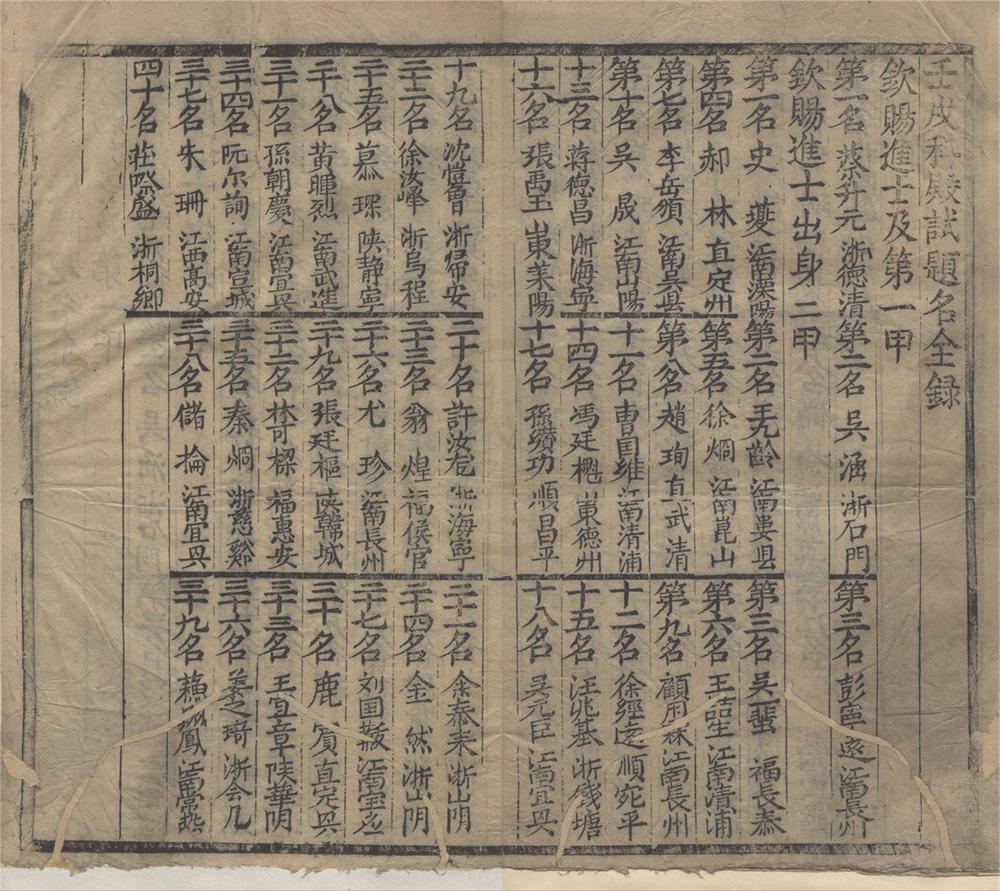 壬戌科殿試題名全録
欽賜進士及第一甲
第一名 蔡升元 浙德清 第二名 吳涵 浙石門 第三名 彭寧遂 江南長州
欽賜進士出身二甲
第一名 史夔 江南溧陽 第二名 王九齡 江南婁县 第三名 吳一蜚 福長泰
第四名 郝林 直定州 第五名 徐炯 江南崑山 第六名 王喆生 江南清浦
第七名 李岳頒 江南吳县 第八名 趙珣 直武清 第九名 顧用霖 江南長州
第十名 吳晟 江南山陽 十一名 曹国維 江南清浦 十二名 徐經遠 順宛平
十三名 蒋德昌 浙海寧 十四名 馮廷櫆 山東德州 十五名 汪兆基 浙錢塘
十六名 張禹玉 山東莱陽 十七名 孫纘功 順昌平 十八名 吳元臣 江南宜兴
十九名 沈愷曾 浙帰安 二十名 許汝龙 浙海寧 二十一名 余泰来 浙山阴
二十二名 徐汝嶧 浙乌程 二十三名 翁煌 福侯官 二十四名 金然 浙山阴
二十五名 慕琛 陕静寧 二十六名 尤珍 江南長州 二十七名 刘国黻 江南宝应
二十八名 黄暐烈 江南武進 二十九名 張廷樞 陕韓城 三十名 鹿賓 直定兴
三十一名 孫朝慶 江南宜兴 三十二名 林可樑 福惠安 三十三名 王宜章 陕華阴
三十四名 阮尔詢 江南宣城 三十五名 秦炯 浙慈谿 三十六名 姜之琦 浙会几
三十七名 朱珊 江西髙安 三十八名 儲掄 江南宜兴 三十九名 鳳 江南常熟
四十名 莊際盛 浙桐鄉